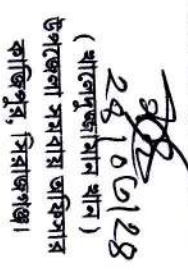 ২৪/০৬/২৪
( খালেদুজ্জামান খান )
উপজেলা সমবায় অফিসার
কাজিপুর, সিরাজগঞ্জ।